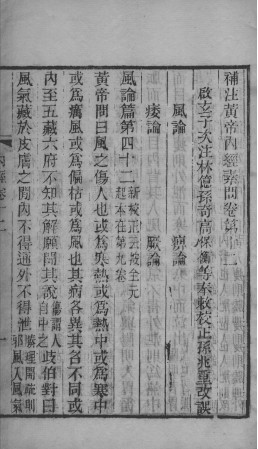 補注黃帝內經素問卷第十二
啟玄子次注林億孫奇高保衡等奉敕校正孫兆重改誤
風論
痹論
痿論
厥論
風論篇第四十二
新校正云按全元
起本在第九卷
黃帝問曰風之傷人也或為寒熱或為熱中或為寒中
或為癘風或為偏枯或為風也其病各異其名不同或
內至五藏六府不知其解願聞其說
傷謂人
自中之
歧伯對曰
風氣藏於皮膚之間內不得通外不得泄
腠理開疏則
邪風入風氣